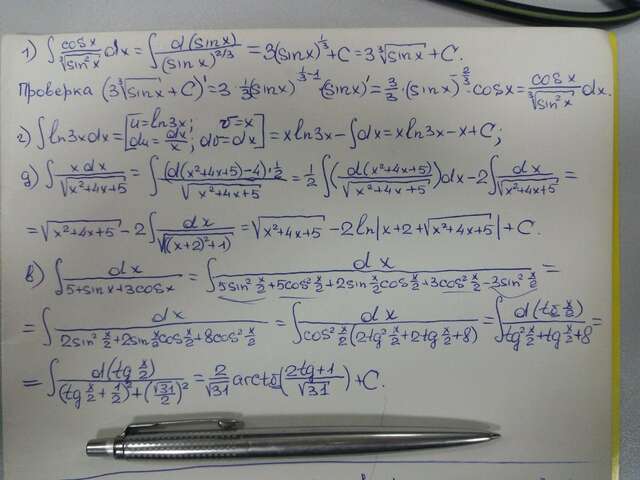 1) ∫ cosx/∛(sin²x) dx = ∫ d(sinx)/(sinx)^(2/3) = 3(sinx)^(1/3) + C = 3∛sinx + C.
Проверка (3∛sinx + C)' = 3 · 1/3 (sinx)^(1/3 -1) · (sinx)' = 3/3 · (sinx)^(-2/3) · cosx = cosx/∛(sin²x) dx.
г) ∫ ln3x dx = [u = ln3x; v = x; du = dx/x; dv = dx] = x ln3x - ∫dx = x ln3x - x + C;
д) ∫ xdx/√(x²+4x+5) = ∫ (d(x²+4x+5)-4)·1/2 / √(x²+4x+5) = 1/2 ∫ (d(x²+4x+5)/√(x²+4x+5)) dx - 2∫ dx/√(x²+4x+5) =
= √(x²+4x+5) - 2∫ dx/√((x+2)²+1) = √(x²+4x+5) - 2ln|x+2+√(x²+4x+5)| + C.
в) ∫ dx/(5+sinx+3cosx) = ∫ dx/(5sin² x/2 + 5cos² x/2 + 2sin x/2 cos x/2 + 3cos² x/2 - 3sin² x/2) =
= ∫ dx/(2sin² x/2 + 2sin x/2 cos x/2 + 8cos² x/2) = ∫ dx/(cos² x/2 (2tg² x/2 + 2tg x/2 + 8)) = ∫ d(tg x/2)/(tg² x/2 + tg x/2 + 8) =
= ∫ d(tg x/2)/((tg x/2 + 1/2)² + (√31/2)²) = 2/√31 arctg((2tg+1)/√31) + C.